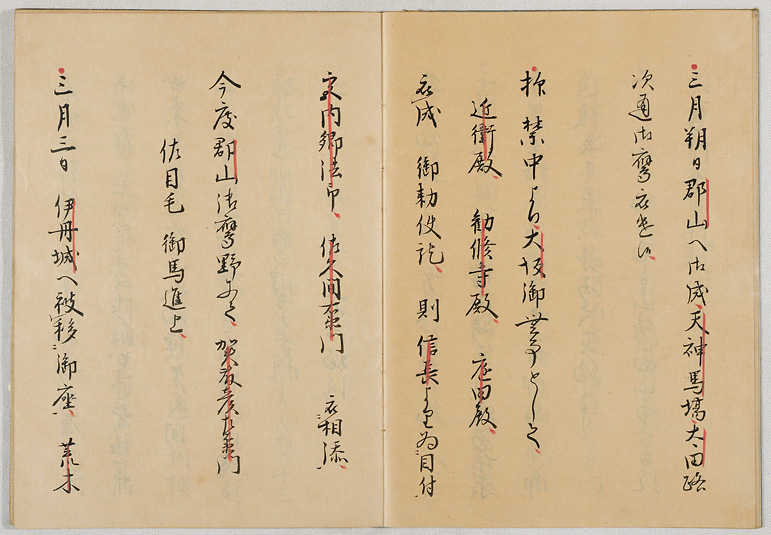 三月朔日郡山へ御成天神馬場太田路
次通御鷹被遊候
抑禁中より大坂御無事としく
近衛殿 勧修寺殿 庭田殿
被成 御勅使訖 則信長よりも為目付
宮内卿法印 佐久間右衛門 被相添
今度郡山御鷹野にて賀藤彦左衛門
佐目毛 御馬進上
三月三日 伊丹城へ被移御座 荒木